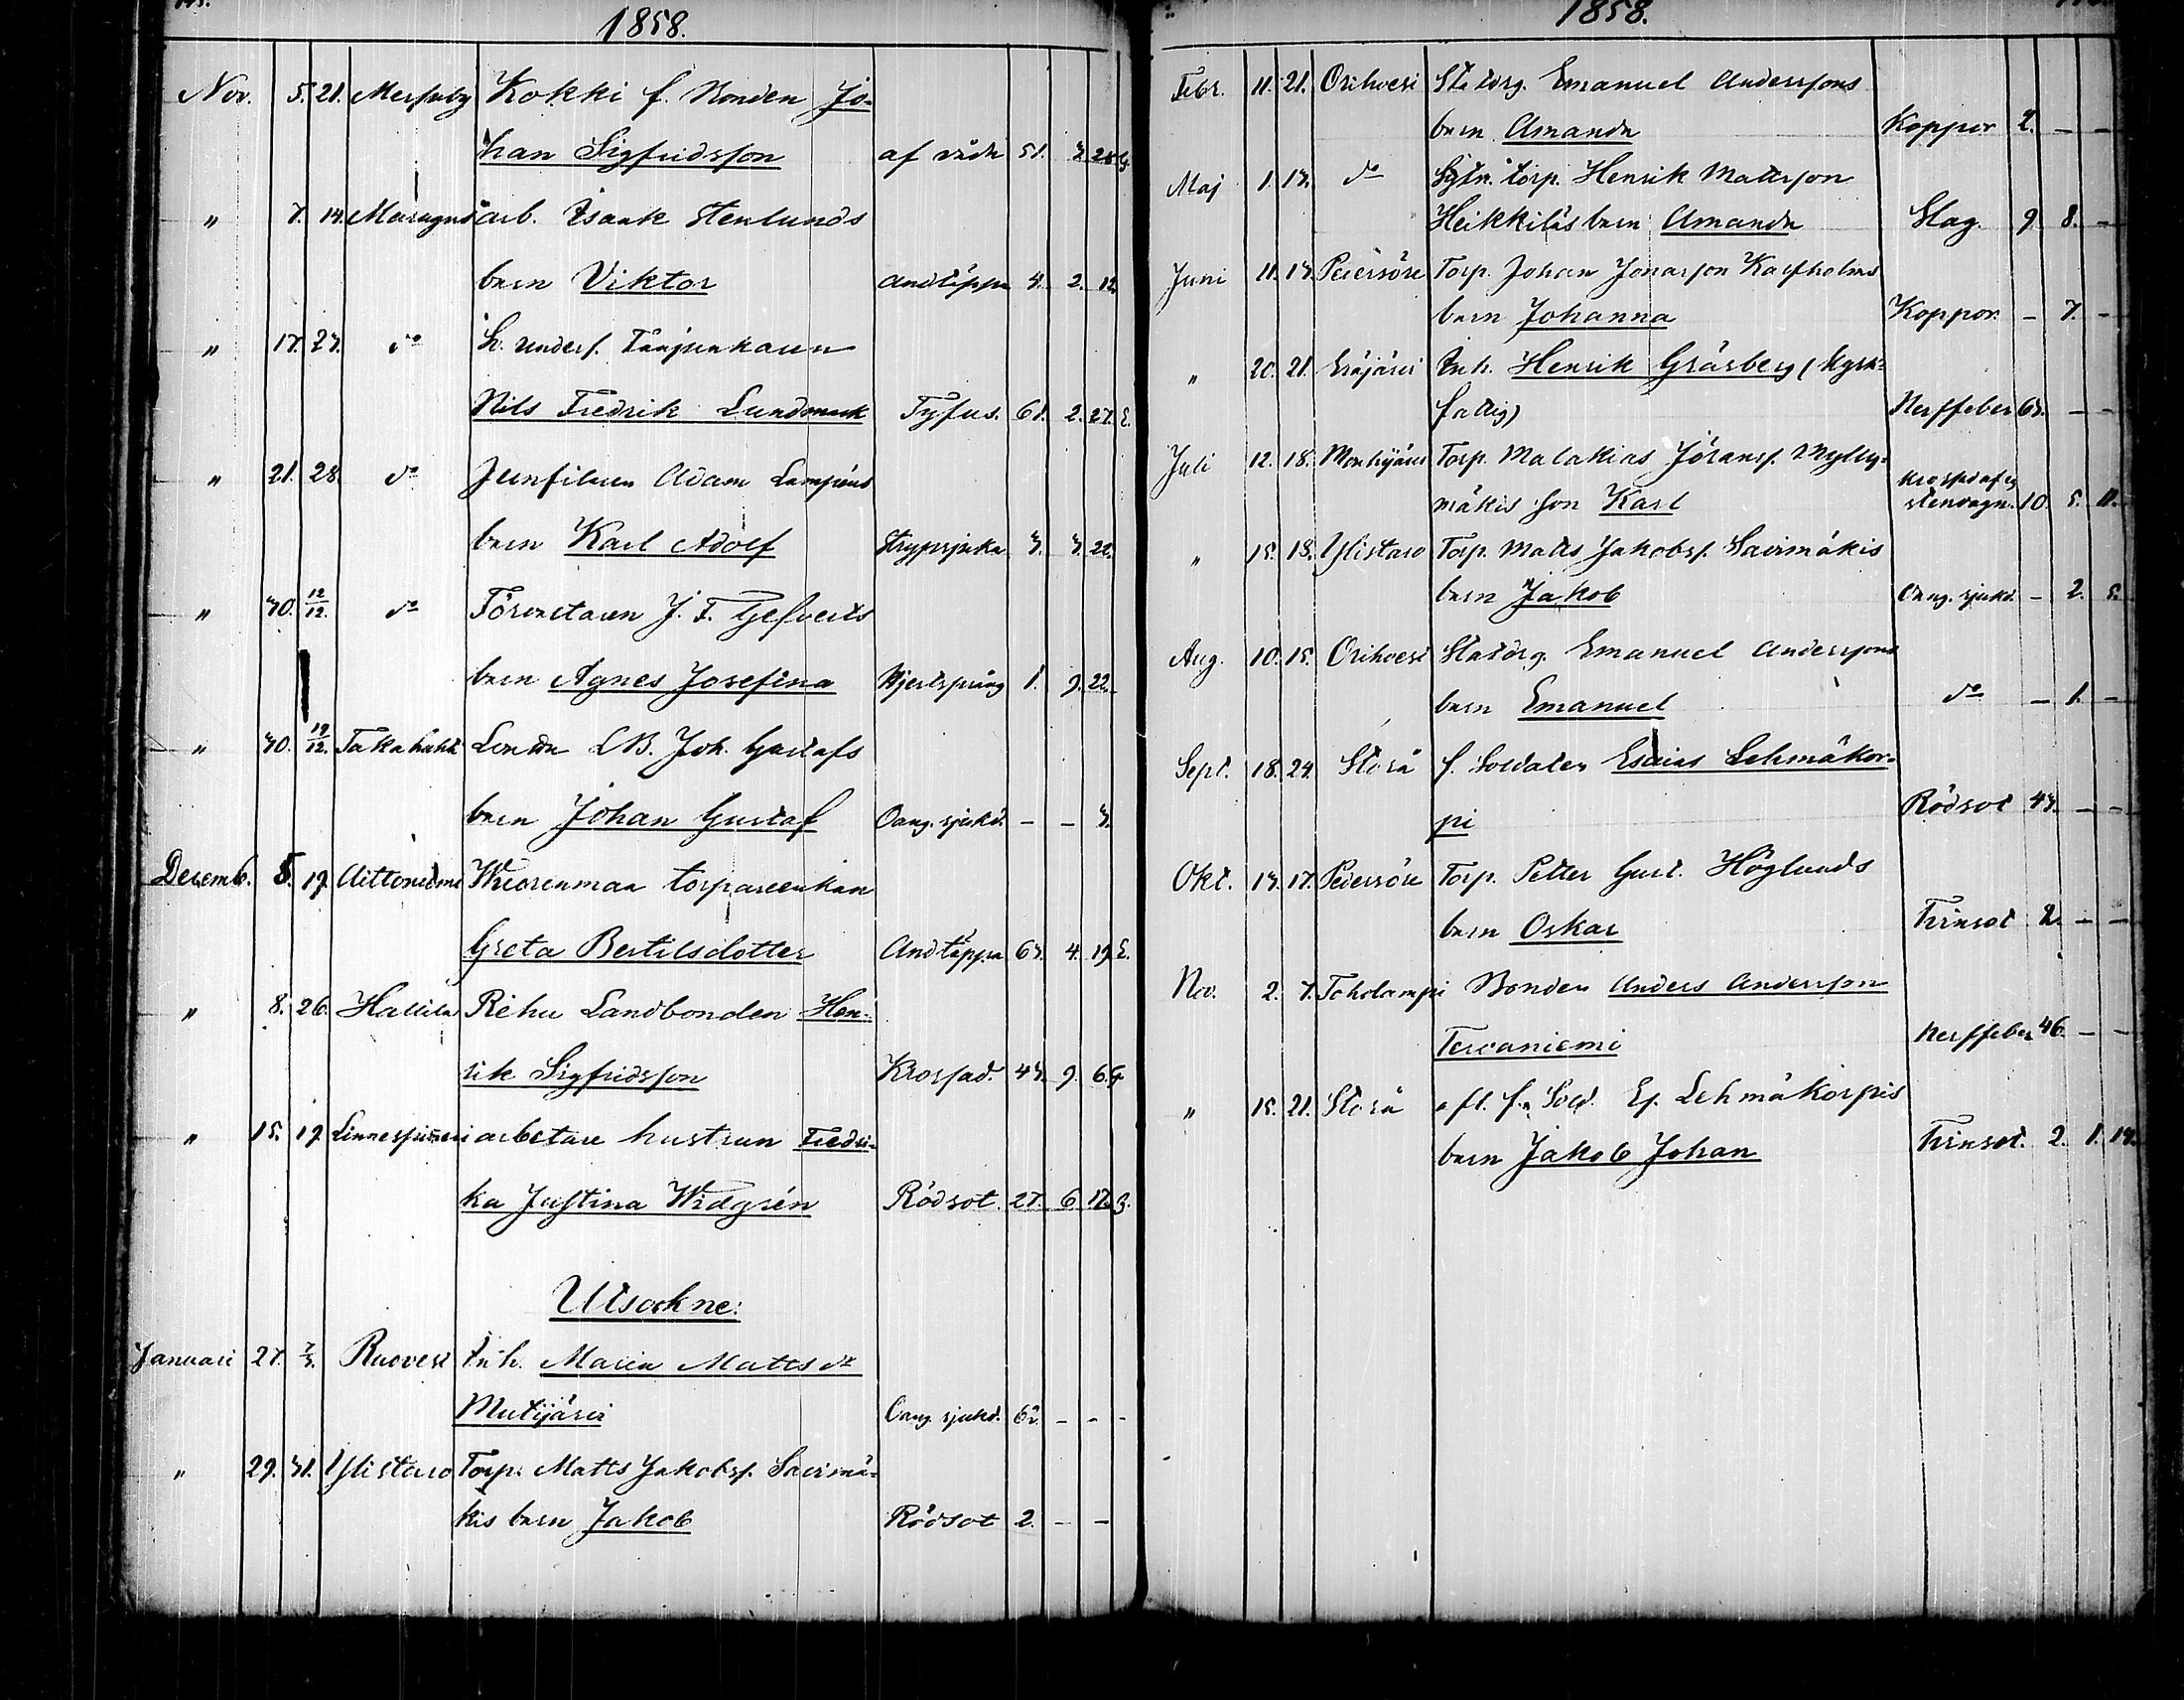 1858.
Nov. 5. 21. Messuby Kokki f. Bonden Jo-
han Sigfridsson af våda 51. 3. 28. G.
" 7. 14. arb. Isaak Stenlunds
barn Viktor Andtäppa 4. 2. 12.
" 17. 27. do
Nils Fredrik Lundmark Tyfus. 61. 2. 27. E.
" 21. 28. do Adam
barn Karl Adolf Strypsjuka 3. 3. 22.
" 30. 12/12. do Förvaltaren J. F. Gefverts
barn Agnes Josefina 1. 9. 22.
" 30. 19/12. Takahuhti Joh. Gustafs
barn Johan Gustaf Oang. sjukd. – – 3.
Decemb. 5. 19. Aittoniemi Wuorenmaa torpareenkan
Greta Bertilsdotter Andtäppa 63. 4. 19. E.
" 8. 26. Hallila Rihu Landbonden Hen-
rik Sigfridsson Krossad. 43. 9. 6. G.
" 15. 19. Linnespinneri arbetare hustrun Fredri-
ka Justina Widgrén Rödsot. 27. 6. 17. G.
Utsockne:
Januari 27. 7/3. Ruovesi Inh. Maria Matts dr
Mutijärvi Oang. sjukd. 62. – – –
" 29. 31. Ylistaro Torp. Matts Jakobss. Savimä-
kis barn Jakob Rödsot 2. – –
1858.
Febr. 11. 21. Orihvesi Statdrg. Emanuel Anderssons
barn Amanda Koppor 2. – –
Maj 1. 13. do torp. Henrik Mattsson
Heikkiläs barn Amanda Slag. 9. 8. –
Juni 11. 13. Pedersöre Torp. Johan Jonasson Karfholms
barn Johanna Koppor. – 7. –
" 20. 21. Eräjärvi Inh. Henrik Gräsberg (kyrk-
fattig) Nerffeber 63. – –
Juli 12. 18. Torp. Malakias Göranss. Mylly-
mäkis son Karl Krossad af stenvagn. 10. 5. 11.
" 15. 18. Ylistaro Torp. Matts Jakobss. Savimäkis
barn Jakob Oang. sjukd. – 2. 5.
Aug. 10. 15. Orihvesi Statdrg. Emanuel Anderssons
barn Emanuel do – 1. –
Sept. 18. 24. Storå f. Soldaten Esaias Lehmäkor-
pi Rödsot 43. – –
Okt. 13. 17. Pedersöre Torp. Petter Gust. Höglunds
barn Oskar Tvinsot 2. – –
Nov. 2. 7. Toholampi Bonden Anders Andersson
Tervaniemi Nerffeber 46. – –
" 15. 21. Storå afl. f. Sold. Es. Lehmäkorpis
barn Jakob Johan Tvinsot. 2. 1. 13.